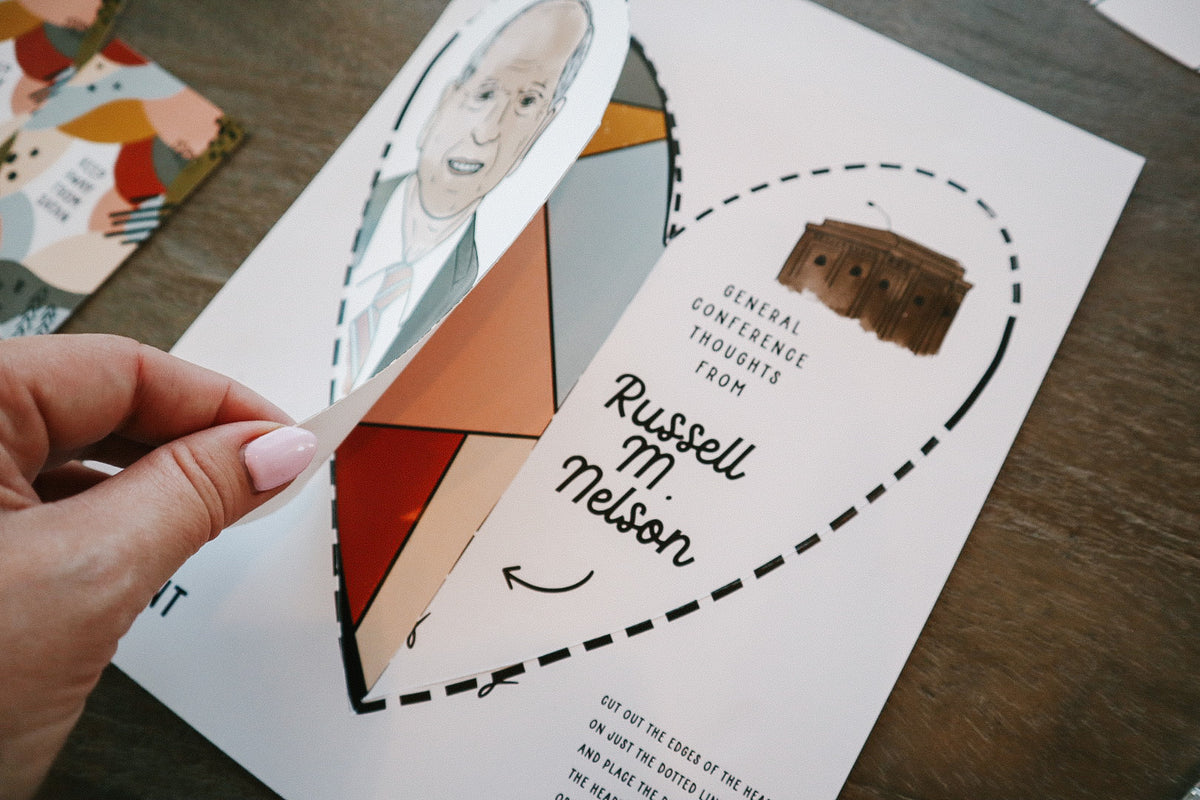 GENERAL
CONFERENCE
THOUGHTS
FROM
Russell
M.
Nelson
NT
CUT OUT THE EDGES OF THE HEA
ON JUST THE DOTTED LIN
AND PLACE THE
THE HEAR